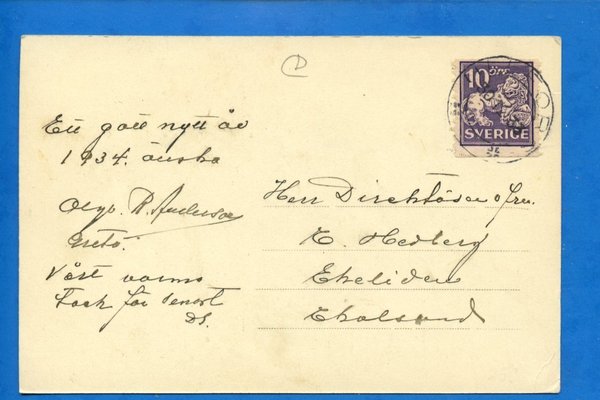 10 ÖRE
SVERIGE
Ett gott nytt år
1934. önska
Olga. R. Anderson
Greta.
Vårt varma
Tack för senast
DS.
Herr Direktören o fru.
E. Hedberg
Ekeliden
Ekolsund